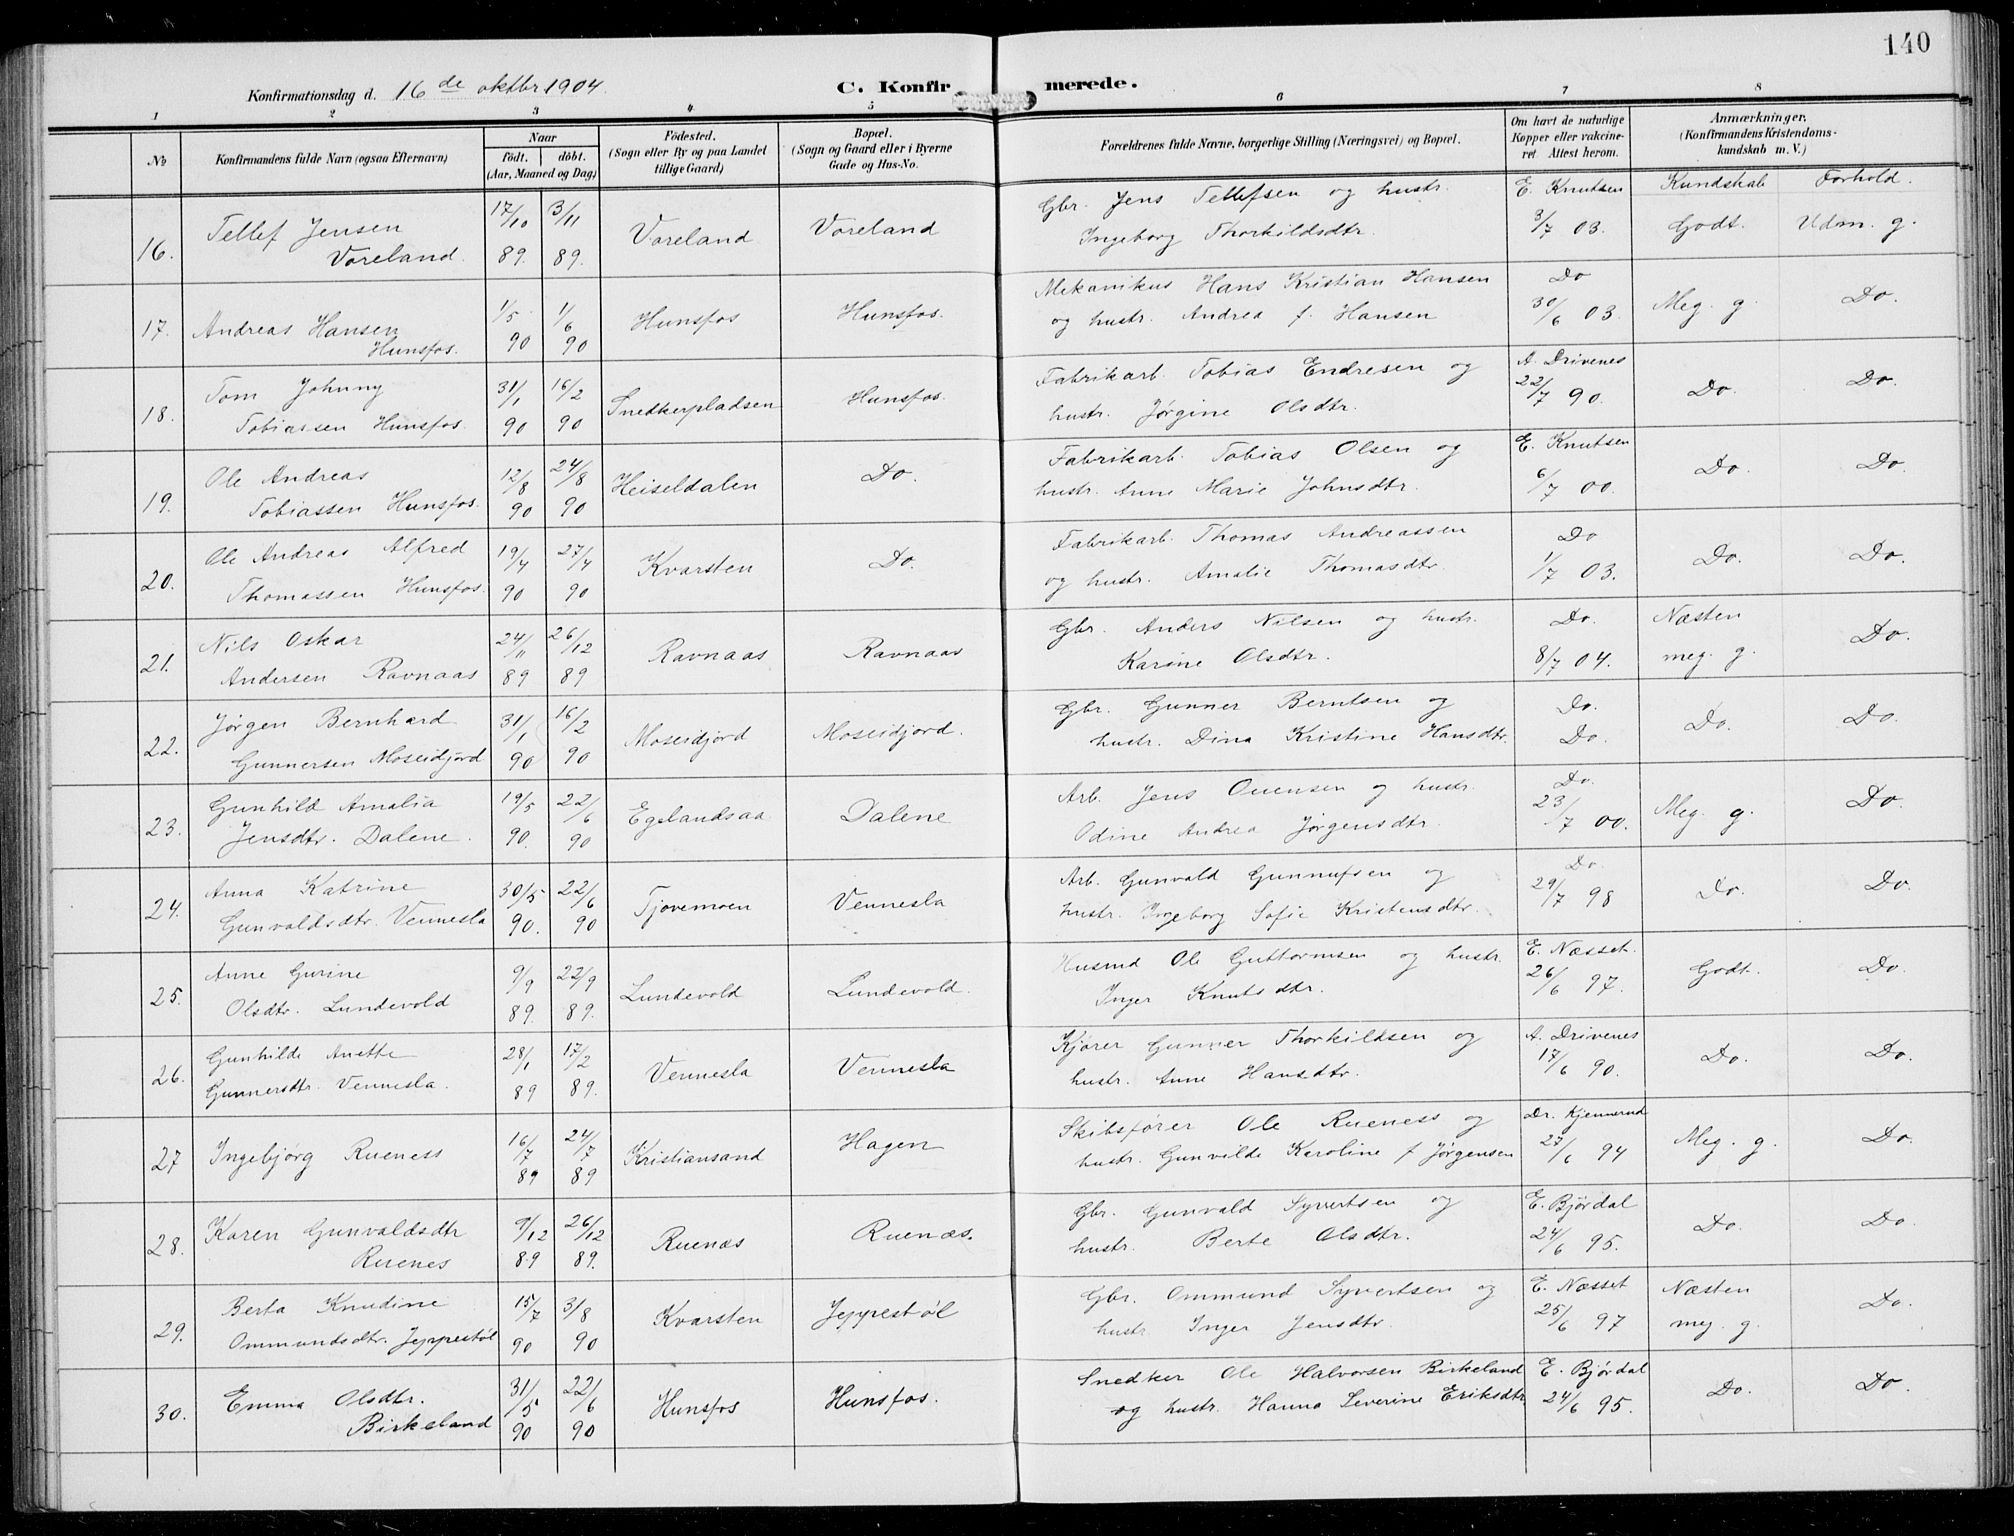 140
Konfirmationsdag d. 16de oktbr 1904.
C. Konfirmerede.
1 2 3 4 5 6 7 8
No
Konfirmandens fulde Navn (ogsaa Efternavn)
Naar
født. døbt.
(Aar, Maaned og Dag)
Fødested.
(Sogn eller By og paa Landet
tillige Gaard)
Bopæl.
(Sogn og Gaard eller i Byerne
Gade og Hus-No.
Forældrenes fulde Navne, borgerlige Stilling (Næringsvei) og Bopæl.
Om havt de naturlige
Kopper eller vakcine-
ret. Attest herom.
Anmærkninger.
(Konfirmandens Kristendoms-
kundskab m. V.)
Kundskab Forhold.
16. Tellef Jensen 17/10 3/11 Voreland Voreland Gbr. Jens Tellefsen og hustr. E. Knutsen Godt. Udm. g.
Voreland. 89. 89. Ingeborg Thorkildsdtr. 3/7 03.
17. Andreas Hansen 1/5 1/6 Hunsfos Hunsfos. Mekanikus Hans Kristian Hansen Do Meg. g. Do.
Hunsfos. 90 90 og hustr. Andrea f. Hansen 30/6 03.
18. Tom Johnny 31/1 16/2 Snedkerpladsen Hunsfos. Fabrikarb. Tobias Endresen og A. Drivenes Do. Do.
Tobiassen Hunsfos. 90 90 hustr. Jørgine Olsdtr. 22/7 90.
19. Ole Andreas 12/8 24/8 Heiseldalen Do. Fabrikarb. Tobias Olsen og E. Knutsen Do. Do.
Tobiassen Hunsfos. 90 90 hustr. Anne Marie Johnsdtr. 6/7 00.
20. Ole Andreas Alfred 19/4 27/4 Kvarsten Do. Fabrikarb. Thomas Andreassen Do Do. Do.
Thomassen Hunsfos. 90 90 og hustr. Amalie Thomasdtr. 1/7 03.
21. Nils Oskar 24/11 26/12 Ravnaas Ravnaas Gbr. Anders Nilsen og hustr. Do. Næsten Do.
Andersen Ravnaas 89 89 Karine Olsdtr. 8/7 04. meg. g.
22. Jørgen Bernhard 31/1 16/2 Moseidjord Moseidjord. Gbr. Gunner Berntsen og Do. Do. Do.
Gunnersen Moseidjord 90 90 hustr. Dina Kristine Hansdtr. Do.
23. Gunhild Amalia 19/5 22/6 Egelandsaa Dalene Arb. Jens Ouensen og hustr. Do. Meg. g. Do.
Jensdtr. Dalene. 90. 90 Odine Andrea Jørgensdtr. 23/7 00.
24. Anna Katrine 30/5 22/6 Tjovemoen Vennesla Arb. Gunvald Gunnufsen og Do. Do. Do.
Gunvaldsdtr. Vennesla 90. 90 hustr. Ingeborg Sofie Kristensdtr. 29/7 98
25. Anne Gurine 9/9 22/9 Lundevold Lundevold. Husmd Ole Guttormsen og hustr. E. Næsset. Godt. Do.
Olsdtr. Lundevold 89. 89. Inger Knutsdtr. 26/6 97.
26. Gunhilde Anette 28/1 17/2 Vennesla Vennesla Kjører Gunner Thorkildsen og A. Drivenes Do. Do.
Gunnersdtr. Vennesla. 89 89. hustr. Anne Hansdtr. 17/6 90.
27 Ingebjørg Rueness 16/7 24/7 Kristiansand Hagen Skibsfører Ole Rueness og Dr. Kjennerud Meg. g. Do.
89 89 hustr. Gunvilde Karoline f Jørgensen 27/6 94
28. Karen Gunvaldsdtr 9/12 26/12 Ruenæs Ruenæs. Gbr. Gunvald Syvertsen og E. Bjørdal Do. Do.
Ruenes 89 89. hustr. Berte Olsdtr. 24/6 95.
29. Berta Knudine 15/7 3/8 Kvarsten Jeppestøl Gbr. Ommund Syvertsen og E. Næsset Næsten Do.
Ommundsdtr. Jeppestøl 90 90 hustr. Inger Jensdtr. 25/6 97 meg. g.
30. Emma Olsdtr. 31/5 22/6 Hunsfos Hunsfos. Snedker Ole Halvorsen Birkeland E. Bjørdal Do. Do.
Birkeland 90 90 og hustr. Hanna Severine Eriksdtr. 24/6 95.